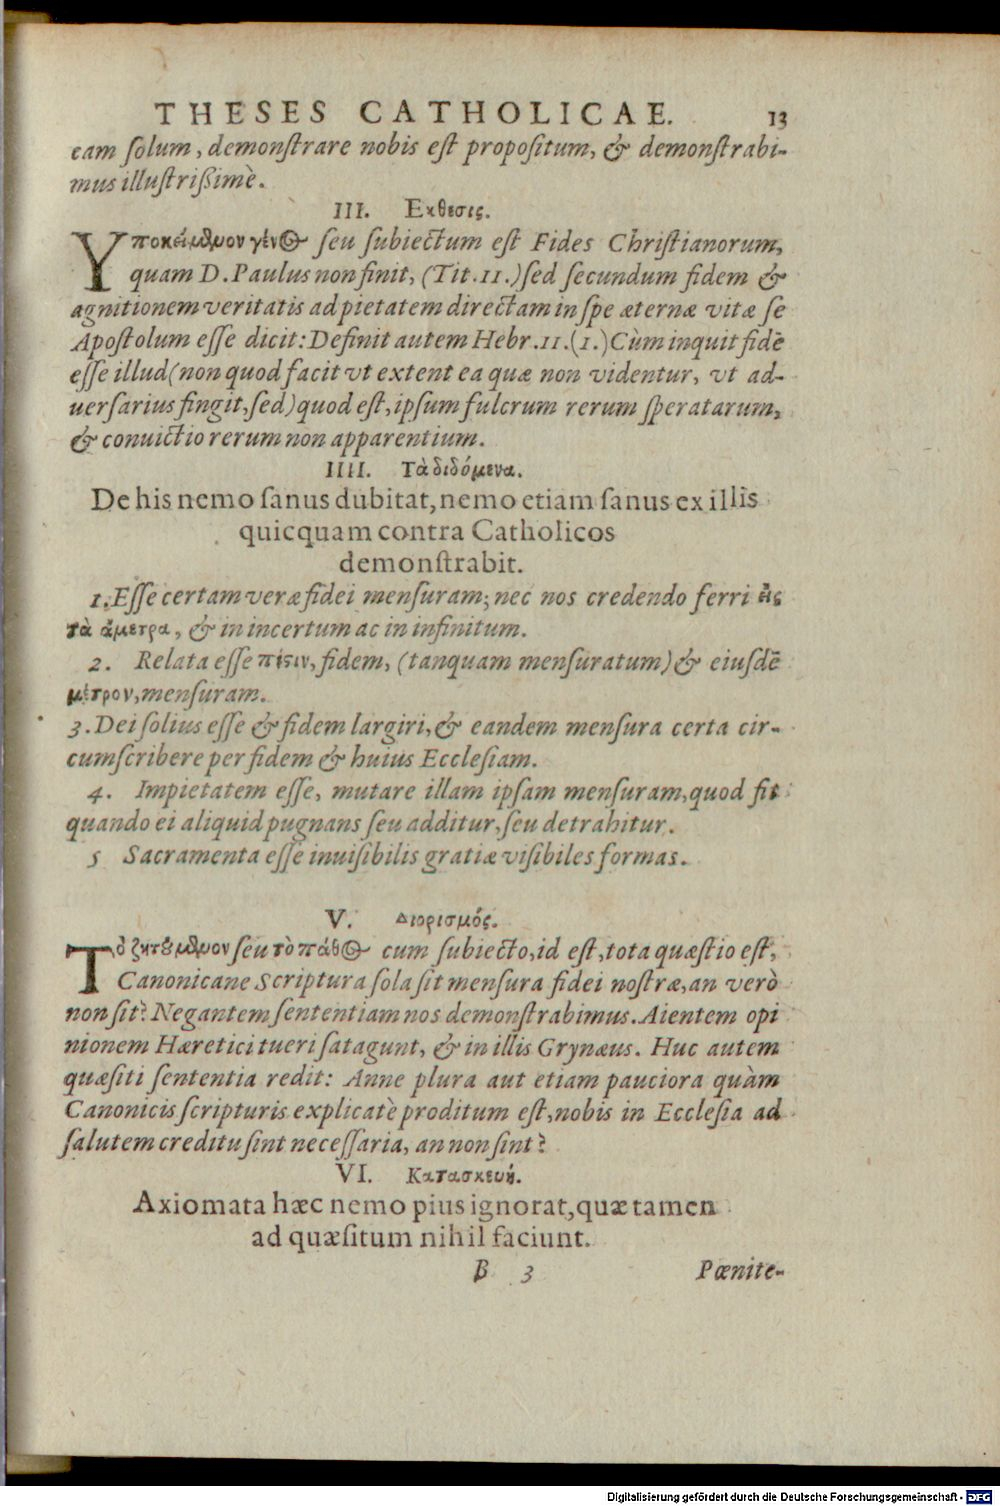 THESES CATHOLICAE. 13
eam ſolum, demonſtrare nobis eſt propoſitum, & demonſtrabi-
mus illuſtriſſimè.
III. Εκθεσις.
Υποκείμενον γένος ſeu ſubiectum eſt Fides Chriſtianorum,
quam D. Paulus non finit, (Tit. 11.) ſed ſecundum fidem &
agnitionem veritatis ad pietatem directam in ſpe æternæ vitæ ſe
Apoſtolum eſſe dicit: Definit autem Hebr. 11. (1.) Cùm inquit fidē
eſſe illud (non quod facit vt extent ea quæ non videntur, vt ad-
uerſarius fingit, ſed) quod eſt, ipſum fulcrum rerum ſperatarum,
& conuictio rerum non apparentium.
IIII. Τὰ διδόμενα.
De his nemo ſanus dubitat, nemo etiam ſanus ex illis
quicquam contra Catholicos
demonſtrabit.
1. Eſſe certam veræ fidei menſuram; nec nos credendo ferri εἰς
τὰ ἄμετρα, & in incertum ac in infinitum.
2. Relata eſſe πίστιν, fidem, (tanquam menſuratum) & eiuſdē
μέτρον, menſuram.
3. Dei ſolius eſſe & fidem largiri, & eandem menſura certa cir-
cumſcribere per fidem & huius Eccleſiam.
4. Impietatem eſſe, mutare illam ipſam menſuram, quod fit
quando ei aliquid pugnans ſeu additur, ſeu detrahitur.
5 Sacramenta eſſe inuiſibilis gratiæ viſibiles formas.
V. Διορισμός.
Τὸ ζητούμενον ſeu τὸ πάθος cum ſubiecto, id eſt, tota quæſtio eſt,
Canonicane Scriptura ſola ſit menſura fidei noſtræ, an verò
non ſit? Negantem ſententiam nos demonſtrabimus. Aientem opi
nionem Hæretici tueri ſatagunt, & in illis Grynæus. Huc autem
quæſiti ſententia redit: Anne plura aut etiam pauciora quàm
Canonicis ſcripturis explicatè proditum eſt, nobis in Eccleſia ad
ſalutem creditu ſint neceſſaria, an non ſint?
VI. Κατασκευή.
Axiomata hæc nemo pius ignorat, quæ tamen
ad quæſitum nihil faciunt.
B 3 Pœnite-
Digitalisierung gefördert durch die Deutsche Forschungsgemeinschaft - DFG